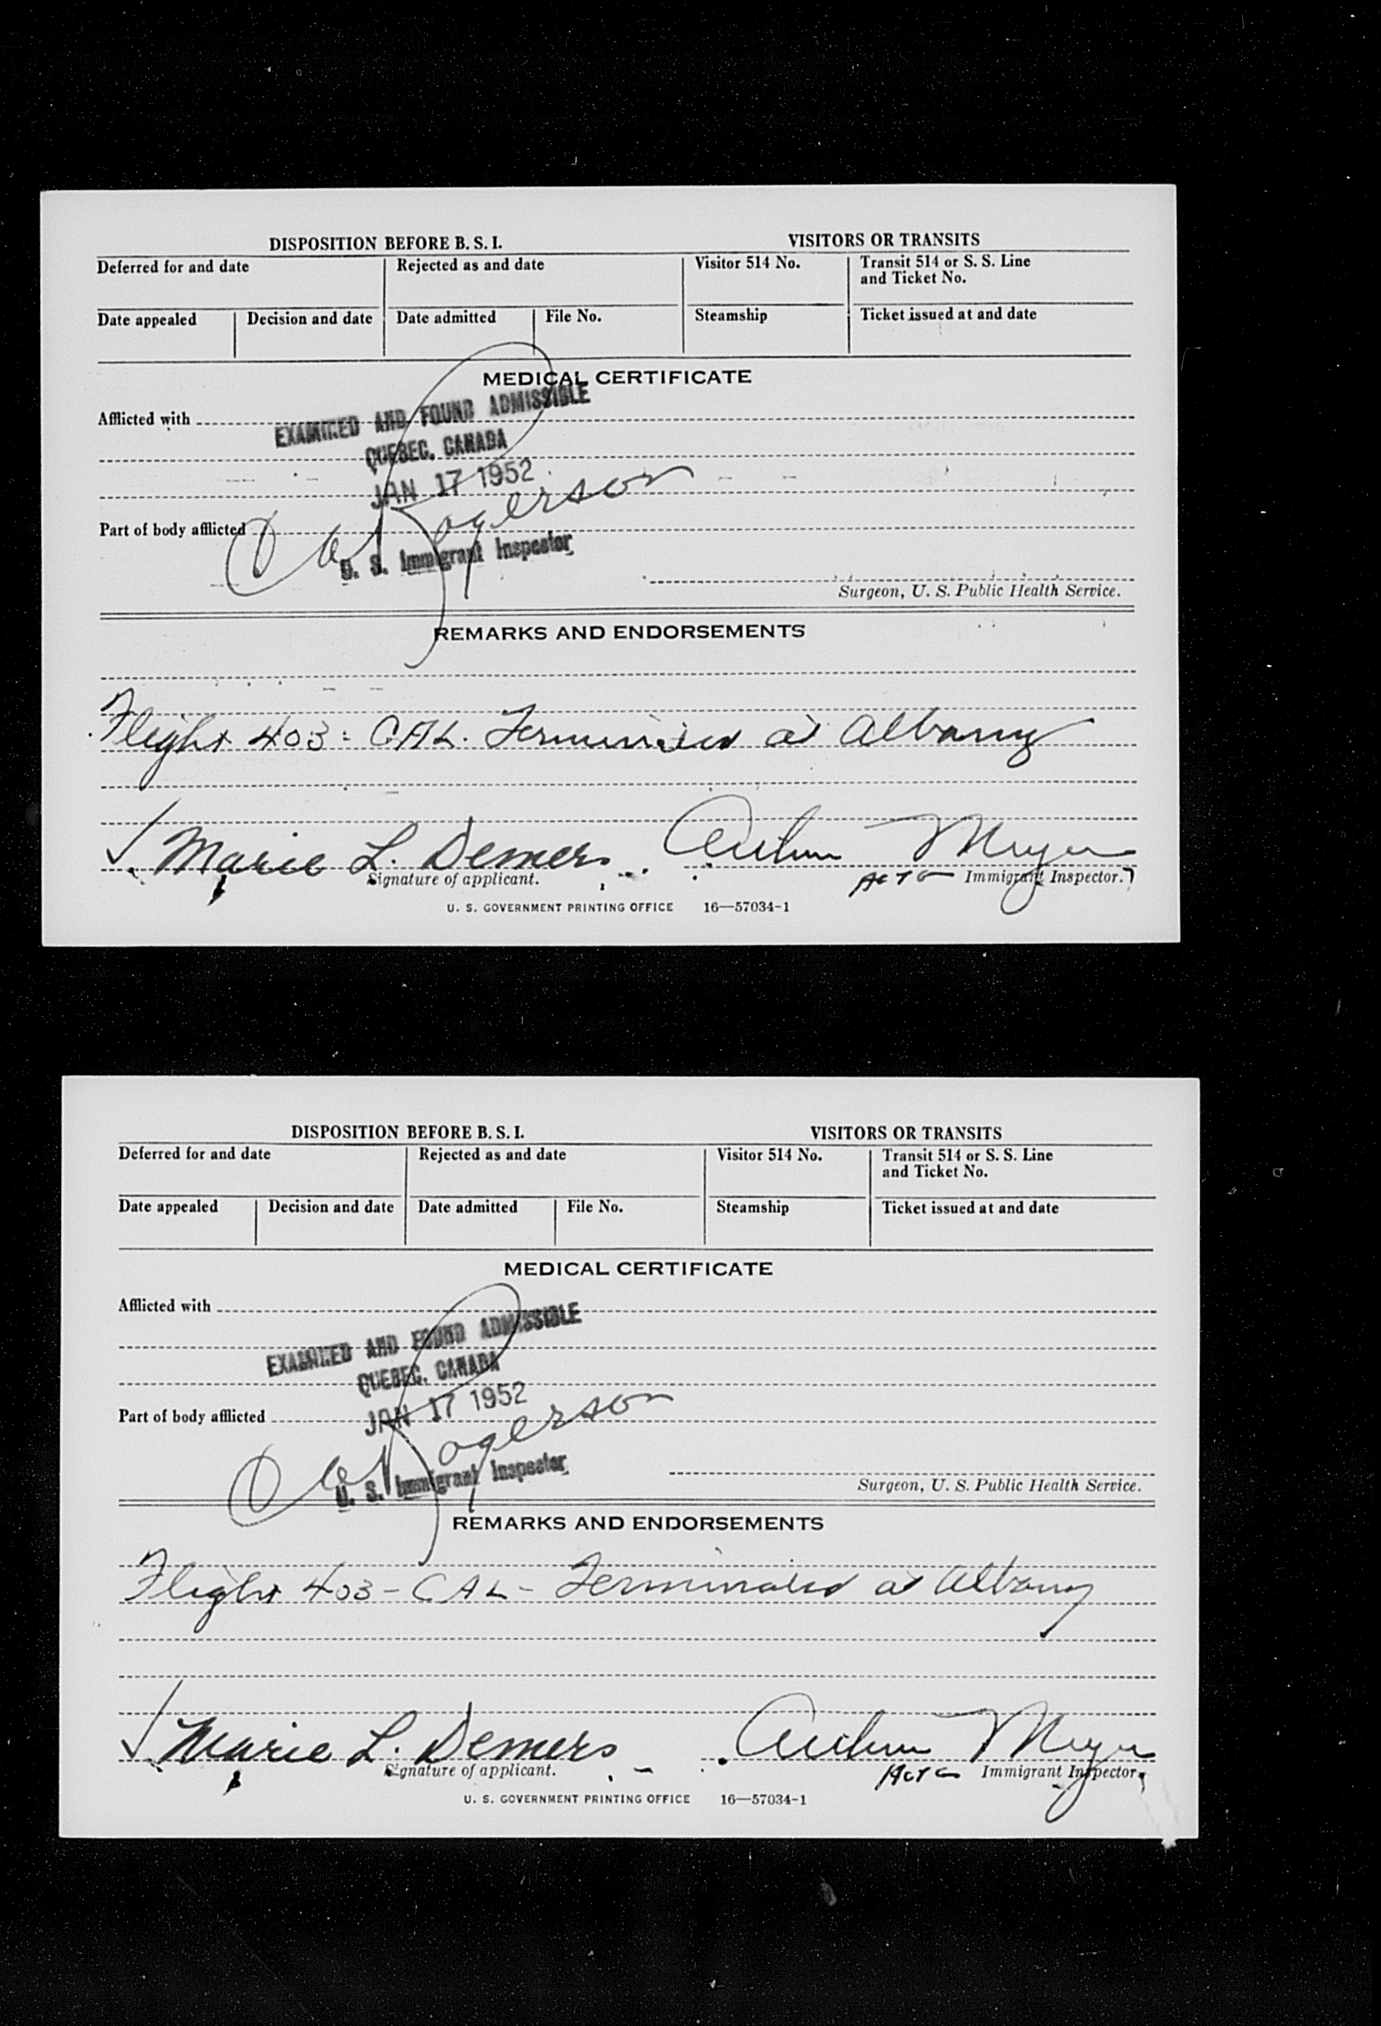 DISPOSITION BEFORE B. S. I. VISITORS OR TRANSITS
Deferred for and date Rejected as and date Visitor 514 No. Transit 514 or S. S. Line
and Ticket No.
Date appealed Decision and date Date admitted File No. Steamship Ticket issued at and date
MEDICAL CERTIFICATE
Afflicted with
EXAMINED AND FOUND ADMISSIBLE
QUEBEC, CANADA
JAN 17 1952
Rogerson
Part of body afflicted
U. S. Immigrant Inspector
Surgeon, U. S. Public Health Service.
REMARKS AND ENDORSEMENTS
Flight 403: CAL. Terminated at Albany
Marie L. Demers
Signature of applicant. Immigrant Inspector.
U. S. GOVERNMENT PRINTING OFFICE 16—57034-1
DISPOSITION BEFORE B. S. I. VISITORS OR TRANSITS
Deferred for and date Rejected as and date Visitor 514 No. Transit 514 or S. S. Line
and Ticket No.
Date appealed Decision and date Date admitted File No. Steamship Ticket issued at and date
MEDICAL CERTIFICATE
Afflicted with
EXAMINED AND FOUND ADMISSIBLE
QUEBEC, CANADA
JAN 17 1952
Part of body afflicted
Rogerson
U. S. Immigrant Inspector
Surgeon, U. S. Public Health Service.
REMARKS AND ENDORSEMENTS
Flight 403 - CAL - Terminated at Albany
Marie L. Demers
Signature of applicant. Immigrant Inspector.
U. S. GOVERNMENT PRINTING OFFICE 16—57034-1